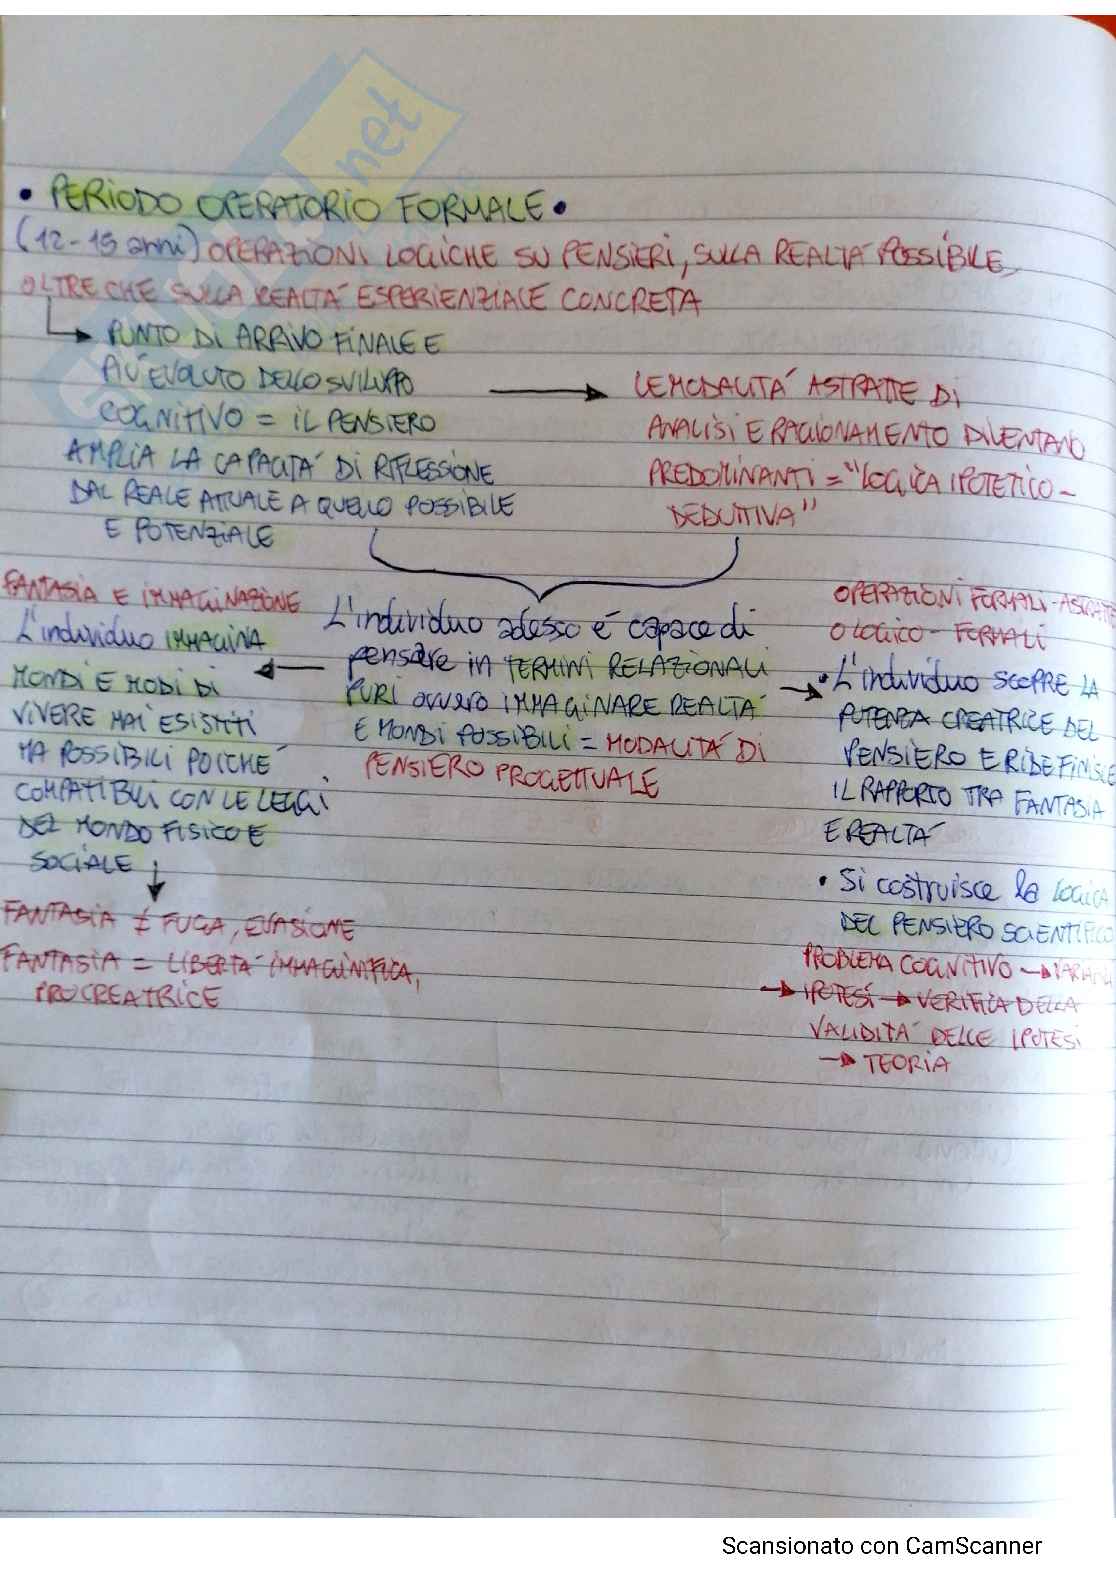 • PERIODO OPERATORIO FORMALE •
(12-15 anni) OPERAZIONI LOGICHE SU PENSIERI, SULLA REALTÀ POSSIBILE,
OLTRE CHE SULLA REALTÀ ESPERIENZIALE CONCRETA
→ PUNTO DI ARRIVO FINALE E
PIÙ EVOLUTO DELLO SVILUPPO
COGNITIVO = IL PENSIERO
AMPLIA LA CAPACITÀ DI RIFLESSIONE
DAL REALE ATTUALE A QUELLO POSSIBILE
E POTENZIALE
→ LE MODALITÀ ASTRATTE DI
ANALISI E RAGIONAMENTO DIVENTANO
PREDOMINANTI = "LOGICA IPOTETICO-
DEDUTTIVA"
L'individuo adesso é capace di
pensare in TERMINI RELAZIONALI
PURI ovvero IMMAGINARE REALTÀ
E MONDI POSSIBILI = MODALITÀ DI
PENSIERO PROGETTUALE
FANTASIA E IMMAGINAZIONE
L'individuo IMMAGINA
MONDI E MODI DI
VIVERE MAI ESISTITI
MA POSSIBILI POICHÉ
COMPATIBILI CON LE LEGGI
DEL MONDO FISICO E
SOCIALE
FANTASIA ≠ FUGA, EVASIONE
FANTASIA = LIBERTÀ IMMAGINIFICA,
PROCREATRICE
OPERAZIONI FORMALI-ASTRATTE
O LOGICO-FORMALI
• L'individuo SCOPRE LA
POTENZA CREATRICE DEL
PENSIERO E RIDEFINISCE
IL RAPPORTO TRA FANTASIA
E REALTÀ
• Si costruisce la LOGICA
DEL PENSIERO SCIENTIFICO
PROBLEMA COGNITIVO →
→ IPOTESI → VERIFICA DELLA
VALIDITÀ DELLE IPOTESI
→ TEORIA
Scansionato con CamScanner